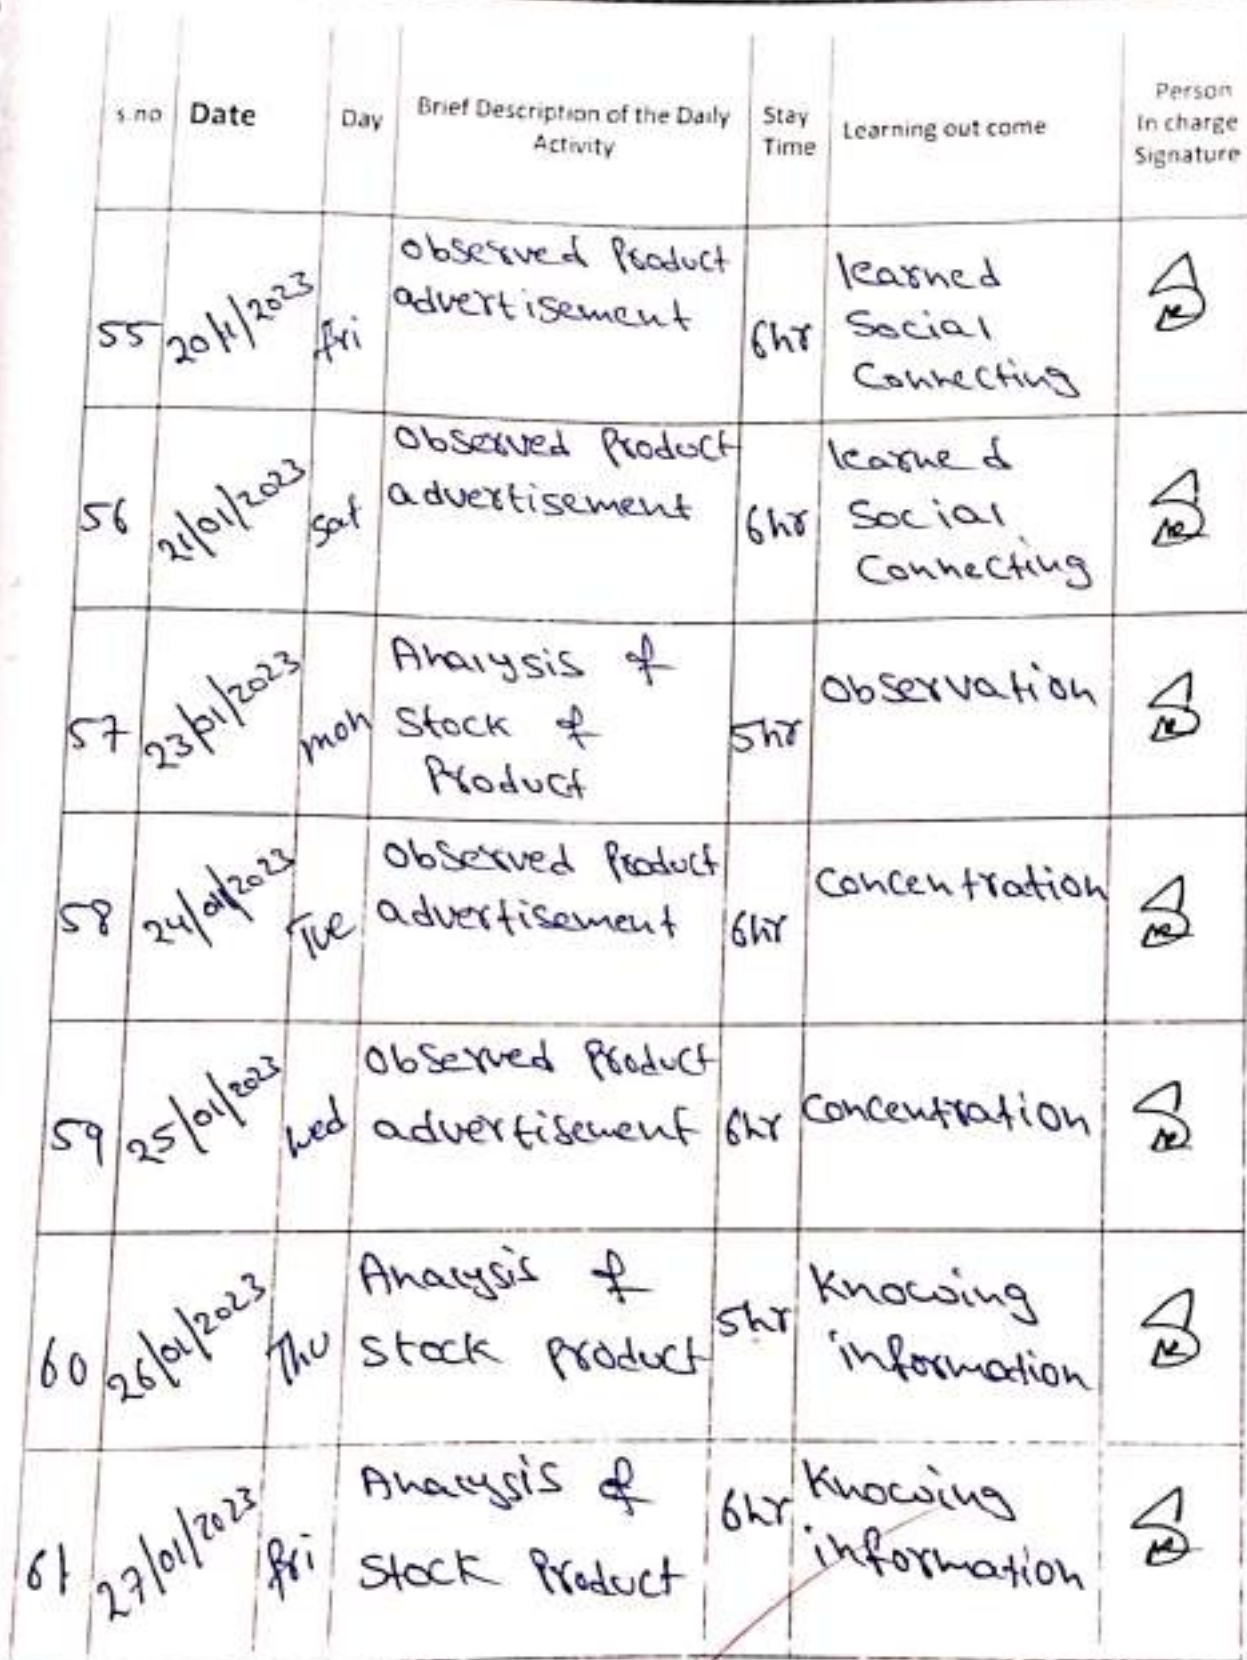 s.no Date Day Brief Description of the Daily Activity Stay Time Learning out come Person In charge Signature
55 20/1/2023 fri Observed Product advertisement 6hr learned Social Connecting
56 21/01/2023 Sat Observed Product advertisement 6hr learned Social Connecting
57 23/01/2023 mon Analysis of Stock of Product 5hr Observation
58 24/01/2023 Tue Observed Product advertisement 6hr Concentration
59 25/01/2023 wed Observed Product advertisement 6hr Concentration
60 26/01/2023 Thu Analysis of Stock Product 5hr Knowing information
61 27/01/2023 fri Analysis of Stock Product 6hr Knowing information